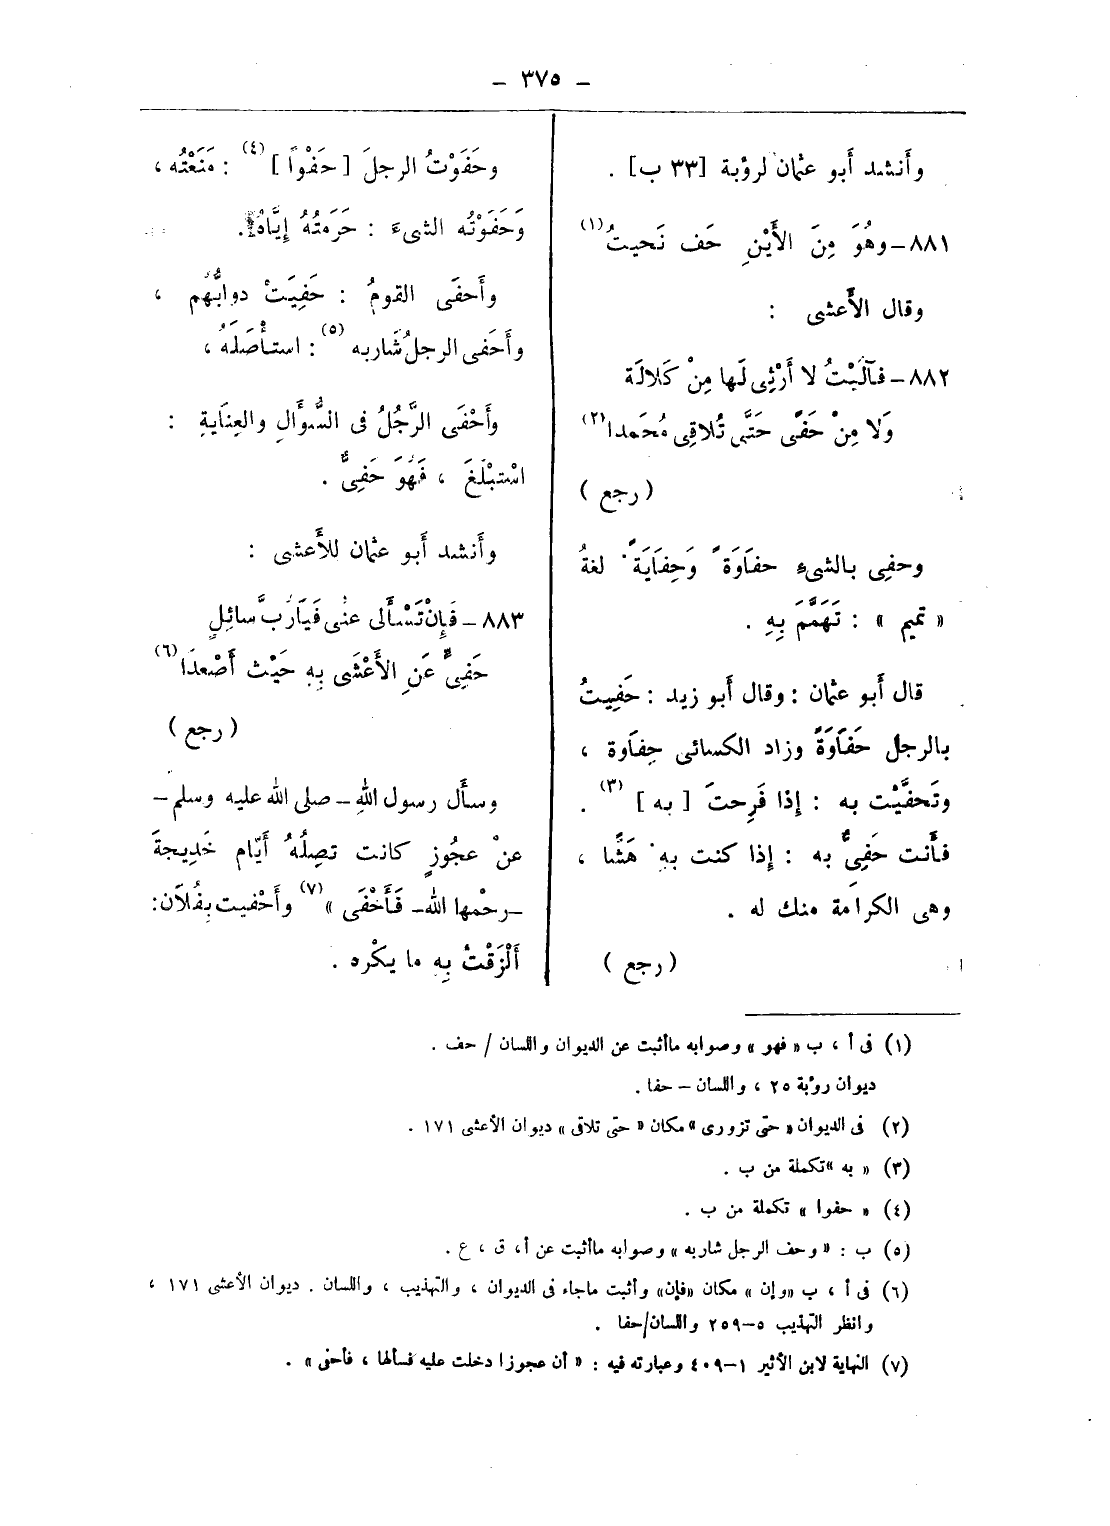 – ٣٧٥ –
وأنشد أبو عثمان لرؤبة [٣٣ ب] .
٨٨١ – وهُوَ مِنَ الأَيْنِ حَف نَحيتُ (١)
وقال الأَعشى :
٨٨٢ – فآلَيْتُ لا أَرْثِى لَها مِنْ كَلالَة
وَلا مِنْ حَفًى حَتَّى تُلاقِى مُحَمدا (٢)
( رجع )
وحفِى بالشىءِ حفَاوَةً وَحِفَايَةً لغةُ
« تميم » : تَهَمَّمَ بِهِ .
قال أَبو عثمان : وقال أَبو زيد : حَفِيتُ
بالرجل حَفَاوَةً وزاد الكسائى حِفاوة ،
وتَحفَّيْت به : إِذا فَرِحتَ [ به ] (٣) .
فأَنت حَفِىٌّ به : إِذا كنت بِهِ هَشًّا ،
وهى الكرَامة منك له .
( رجع )
وحَفَوْتُ الرجلَ [ حَفْواً ] (٤) : مَنَعْتُه ،
وَحَفَوْتُه الشىءَ : حَرَمتُهُ إِيَّاهُ.
وأَحفَى القومُ : حَفِيَتْ دوابُّهُم ،
وأَحفى الرجلُ شَاربه (٥) : استأْصَلَهُ ،
وأَحْفَى الرَّجُلُ فى السُّوَّالِ والعِنَايةِ :
اسْتبْلَغَ ، فَهُوَ حَفِىٌّ .
وأَنشد أَبو عثمان للأَعشى :
٨٨٣ – فَإِنْ تَسْأَلى عنِّى فَيَارُبَّ سائِلٍ
حَفِىٌّ عَنِ الأَعْشَى بِهِ حَيْث أَصْعدَا (٦)
( رجع )
وسأَل رسول اللهِ – صلى الله عليه وسلم –
عنْ عجُوزٍ كانت تصِلُهُ أَيّام خَدِيجةَ
–رحْمها الله– فَأَحْفَى » (٧) وأَحْفيت بِفُلاَن:
أَلْزَقْتُ بِهِ ما يكْره .
(١) فى أ ، ب « فهو » وصوابه ماأثبت عن الديوان واللسان / حف .
ديوان رؤبة ٢٥ ، واللسان – حفا .
(٢) فى الديوان « حتى تزورى » مكان « حتى تلاقى » ديوان الأعشى ١٧١ .
(٣) « به » تكملة من ب .
(٤) « حفوا » تكملة من ب .
(٥) ب : « وحف الرجل شاربه » وصوابه ماأثبت عن أ، ق ، ع .
(٦) فى أ ، ب «وإن » مكان «فإن» وأثبت ماجاء فى الديوان ، والتهذيب ، واللسان . ديوان الأعشى ١٧١ ،
وانظر التهذيب ٥–٢٥٩ واللسان/حفا .
(٧) النهاية لابن الأثير ١–٤٠٩ وعبارته فيه : « أن عجوزا دخلت عليه فسألها ، فأحفى » .